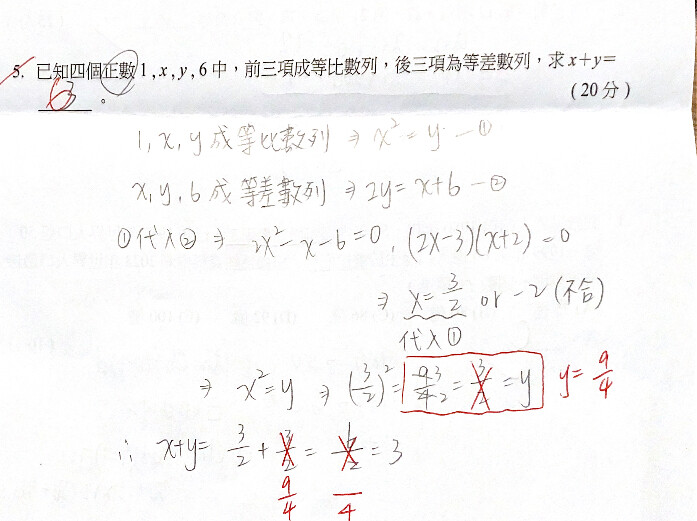 5. 已知四個正數1,x,y,6中，前三項成等比數列，後三項為等差數列，求x+y=
3。 (20分)
1, x, y 成等比數列 ⇒ x² = y —①
x, y, 6 成等差數列 ⇒ 2y = x+6 —②
①代入② ⇒ 2x²-x-6=0, (2x-3)(x+2)=0
⇒ x=3/2 or -2 (不合)
代入①
⇒ x²=y ⇒ (3/2)²= 9/4 = 3/2 = y y=9/4
∴ x+y= 3/2 + 3/2 = 6/2 = 3
9/4 /4